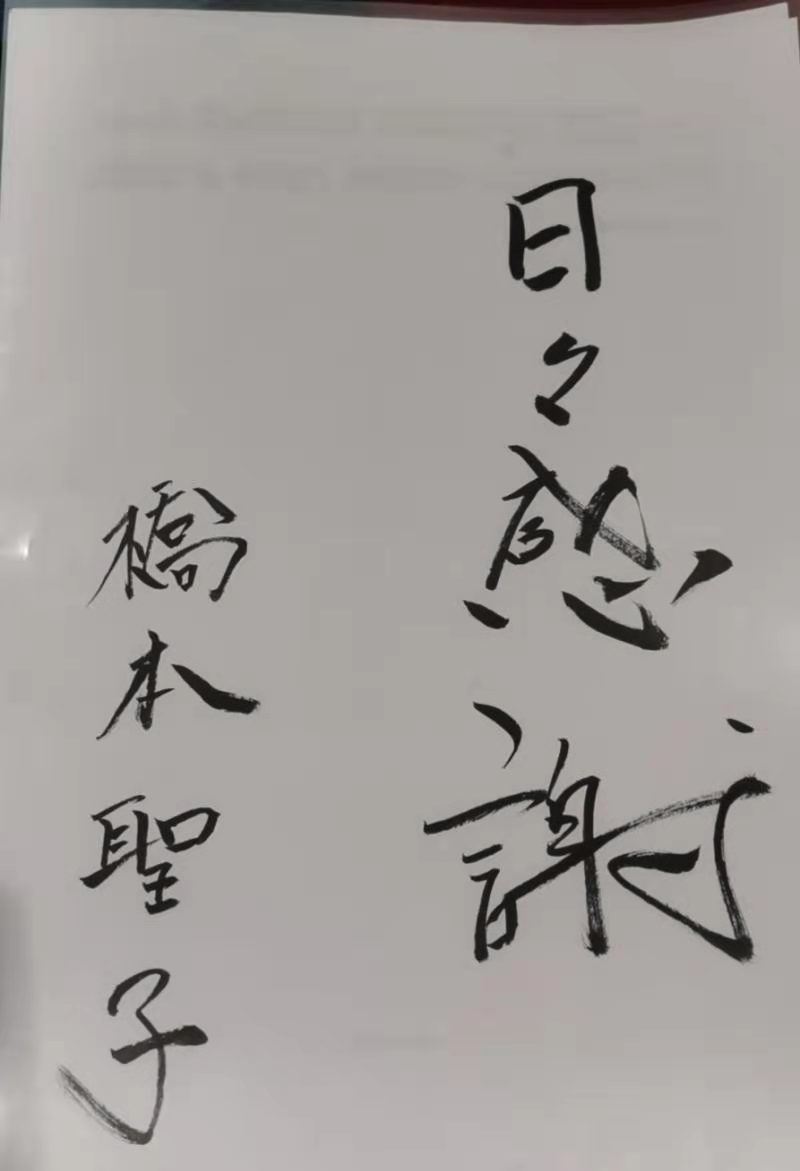 日々感謝
橋本聖子